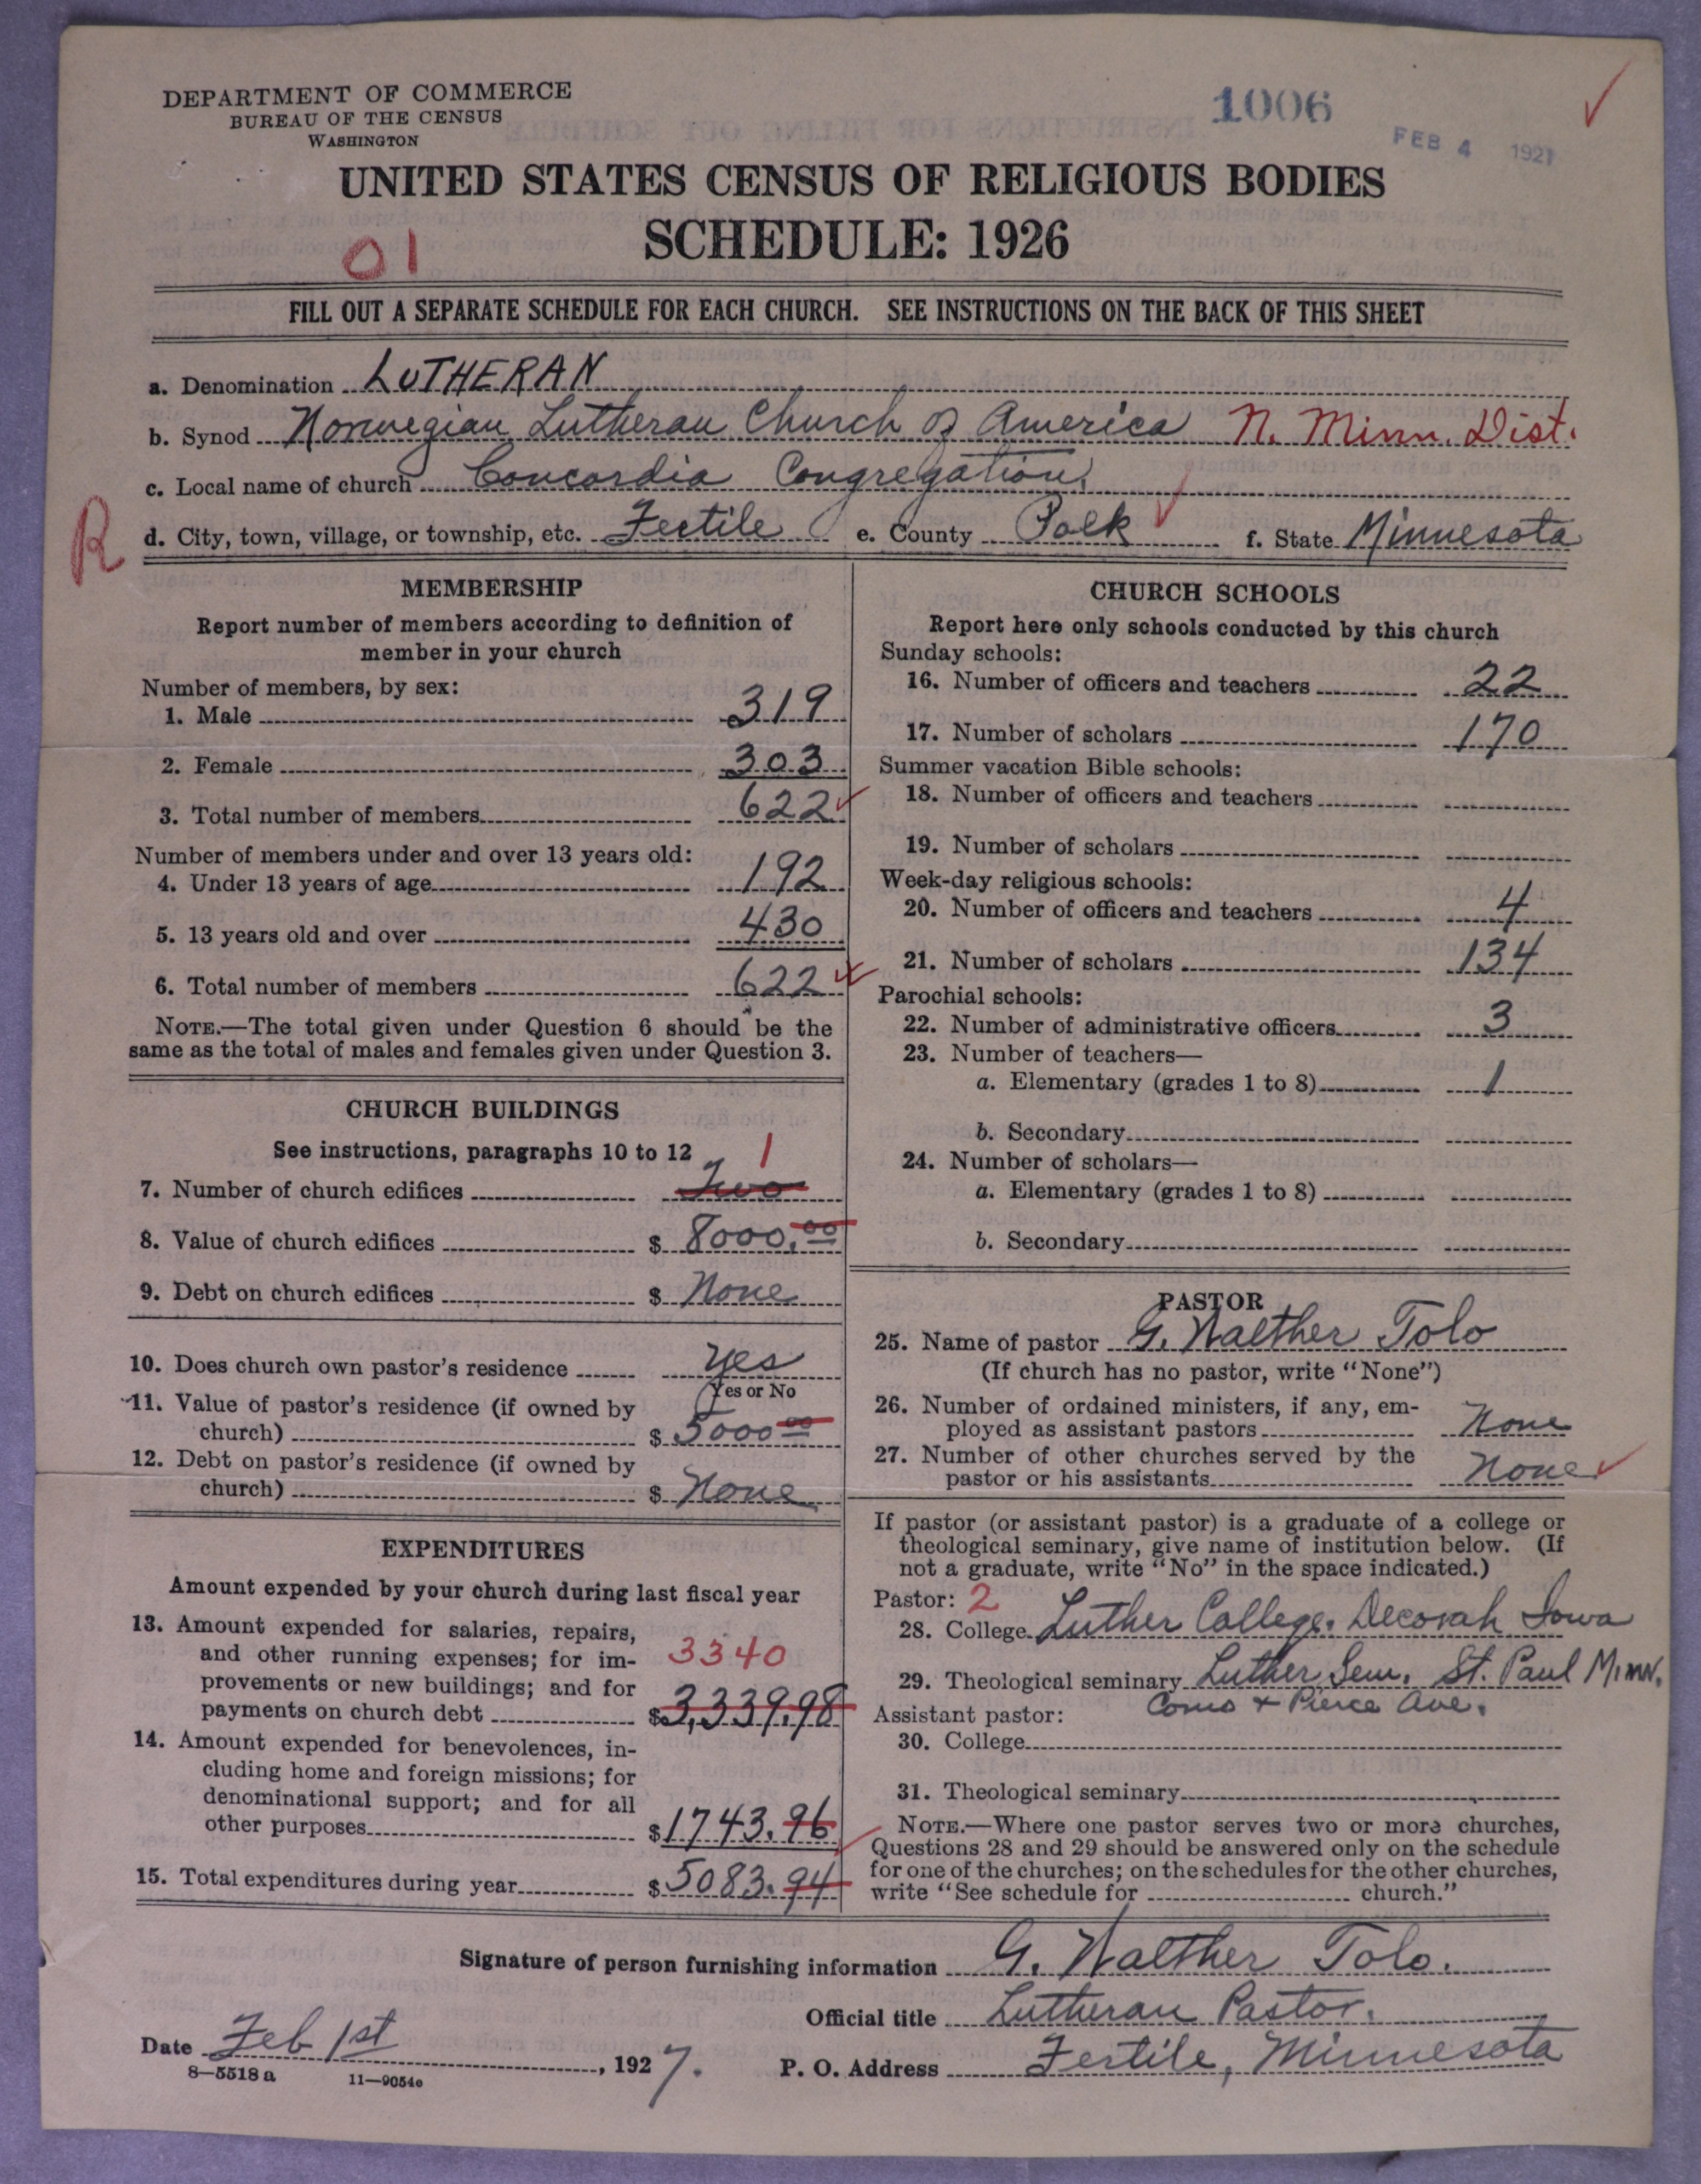 DEPARTMENT OF COMMERCE
BUREAU OF THE CENSUS
WASHINGTON
1006
FEB 4 1927
UNITED STATES CENSUS OF RELIGIOUS BODIES
SCHEDULE: 1926
01
FILL OUT A SEPARATE SCHEDULE FOR EACH CHURCH. SEE INSTRUCTIONS ON THE BACK OF THIS SHEET
a. Denomination LUTHERAN
b. Synod Norwegian Lutheran Church of America N. Minn. Dist.
c. Local name of church Concordia Congregation.
R
d. City, town, village, or township, etc. Fertile e. County Polk f. State Minnesota
MEMBERSHIP
Report number of members according to definition of
member in your church
Number of members, by sex:
1. Male 319
2. Female 303
3. Total number of members 622
Number of members under and over 13 years old:
4. Under 13 years of age 192
5. 13 years old and over 430
6. Total number of members 622
NOTE.—The total given under Question 6 should be the
same as the total of males and females given under Question 3.
CHURCH BUILDINGS
See instructions, paragraphs 10 to 12
1
7. Number of church edifices Two
8. Value of church edifices $ 8000.00
9. Debt on church edifices $ None
10. Does church own pastor's residence yes
(Yes or No
11. Value of pastor's residence (if owned by
church) $ 5000 00
12. Debt on pastor's residence (if owned by
church) $ None
EXPENDITURES
Amount expended by your church during last fiscal year
13. Amount expended for salaries, repairs,
and other running expenses; for im- 3340
provements or new buildings; and for
payments on church debt $3,339.98
14. Amount expended for benevolences, in-
cluding home and foreign missions; for
denominational support; and for all
other purposes $1743.96
15. Total expenditures during year $5083.94
CHURCH SCHOOLS
Report here only schools conducted by this church
Sunday schools:
16. Number of officers and teachers 22
17. Number of scholars 170
Summer vacation Bible schools:
18. Number of officers and teachers
19. Number of scholars
Week-day religious schools:
20. Number of officers and teachers 4
21. Number of scholars 134
Parochial schools:
22. Number of administrative officers 3
23. Number of teachers—
a. Elementary (grades 1 to 8) 1
b. Secondary
24. Number of scholars—
a. Elementary (grades 1 to 8)
b. Secondary
PASTOR
25. Name of pastor G. Walther Tolo
(If church has no pastor, write "None")
26. Number of ordained ministers, if any, em-
ployed as assistant pastors None
27. Number of other churches served by the
pastor or his assistants None
If pastor (or assistant pastor) is a graduate of a college or
theological seminary, give name of institution below. (If
not a graduate, write "No" in the space indicated.)
Pastor: 2
28. College Luther College. Decorah Iowa
29. Theological seminary Luther Sem. St. Paul Minn.
Assistant pastor: Como + Pierce Ave.
30. College
31. Theological seminary
NOTE.—Where one pastor serves two or more churches,
Questions 28 and 29 should be answered only on the schedule
for one of the churches; on the schedules for the other churches,
write "See schedule for church."
Signature of person furnishing information G. Walther Tolo.
Official title Lutheran Pastor.
Date Feb 1st, 1927. P. O. Address Fertile, Minnesota
8—5518 a 11—9054c